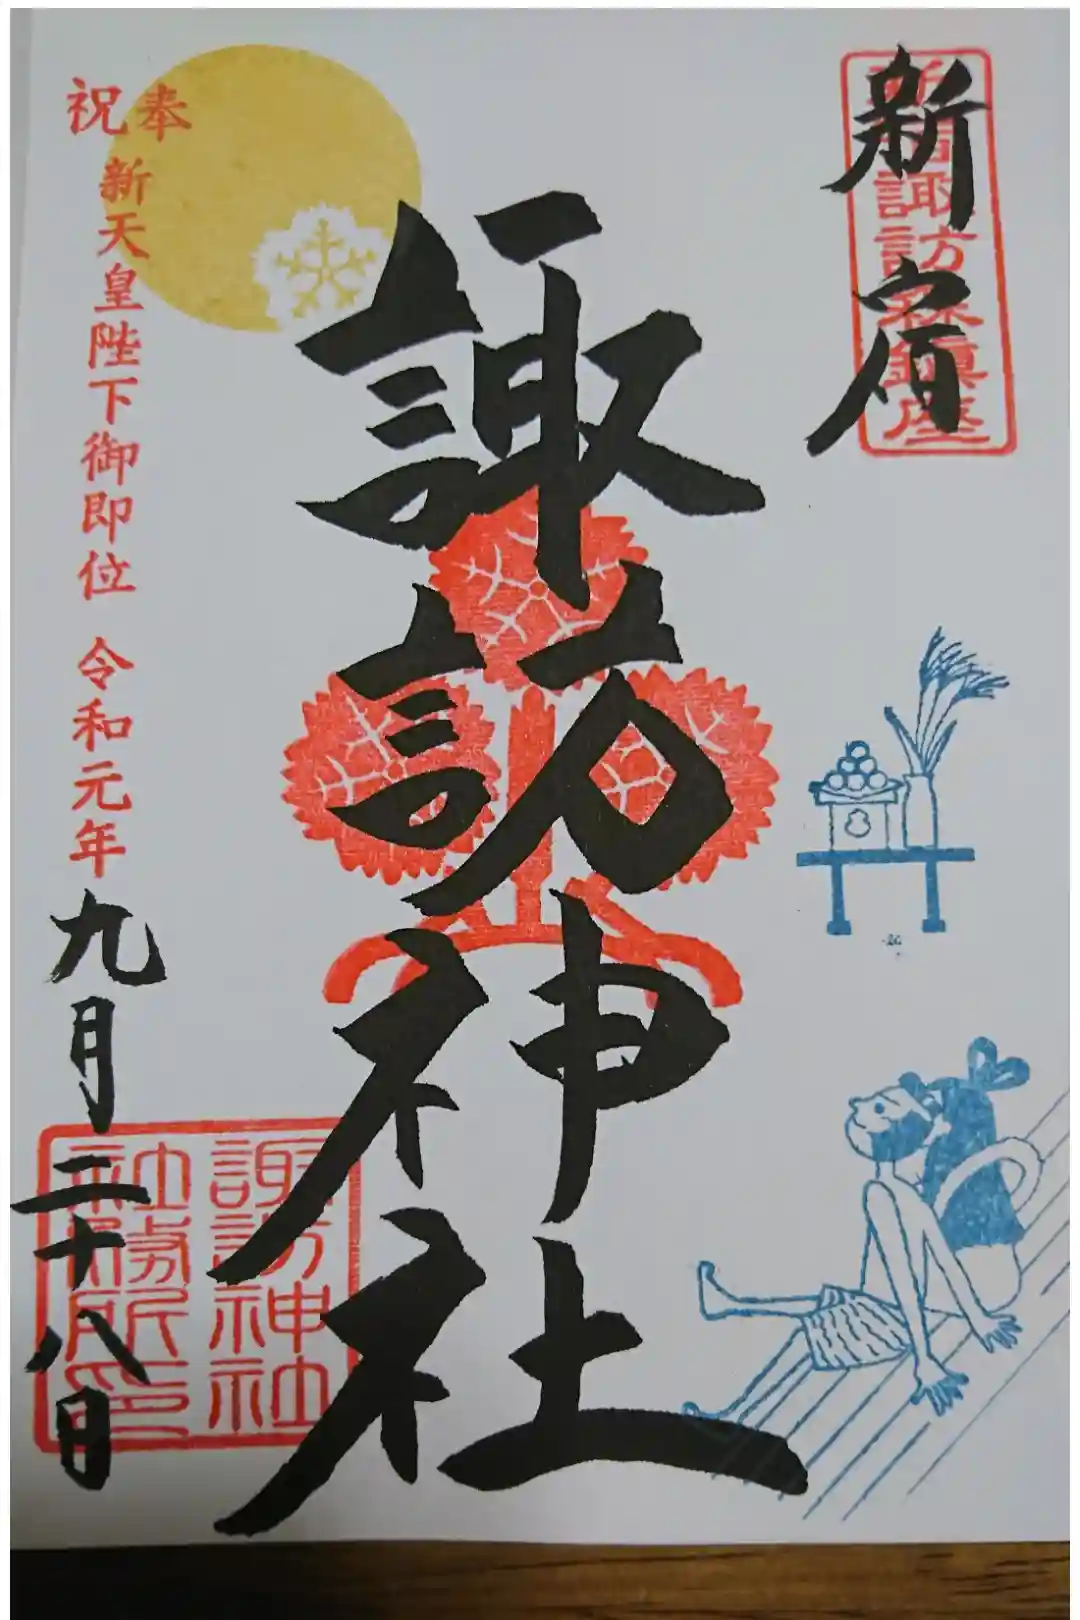 新宿
新宿諏訪森鎮座
諏訪神社
奉祝
新天皇陛下御即位 令和元年
九月二十八日
諏訪神社
社務所印